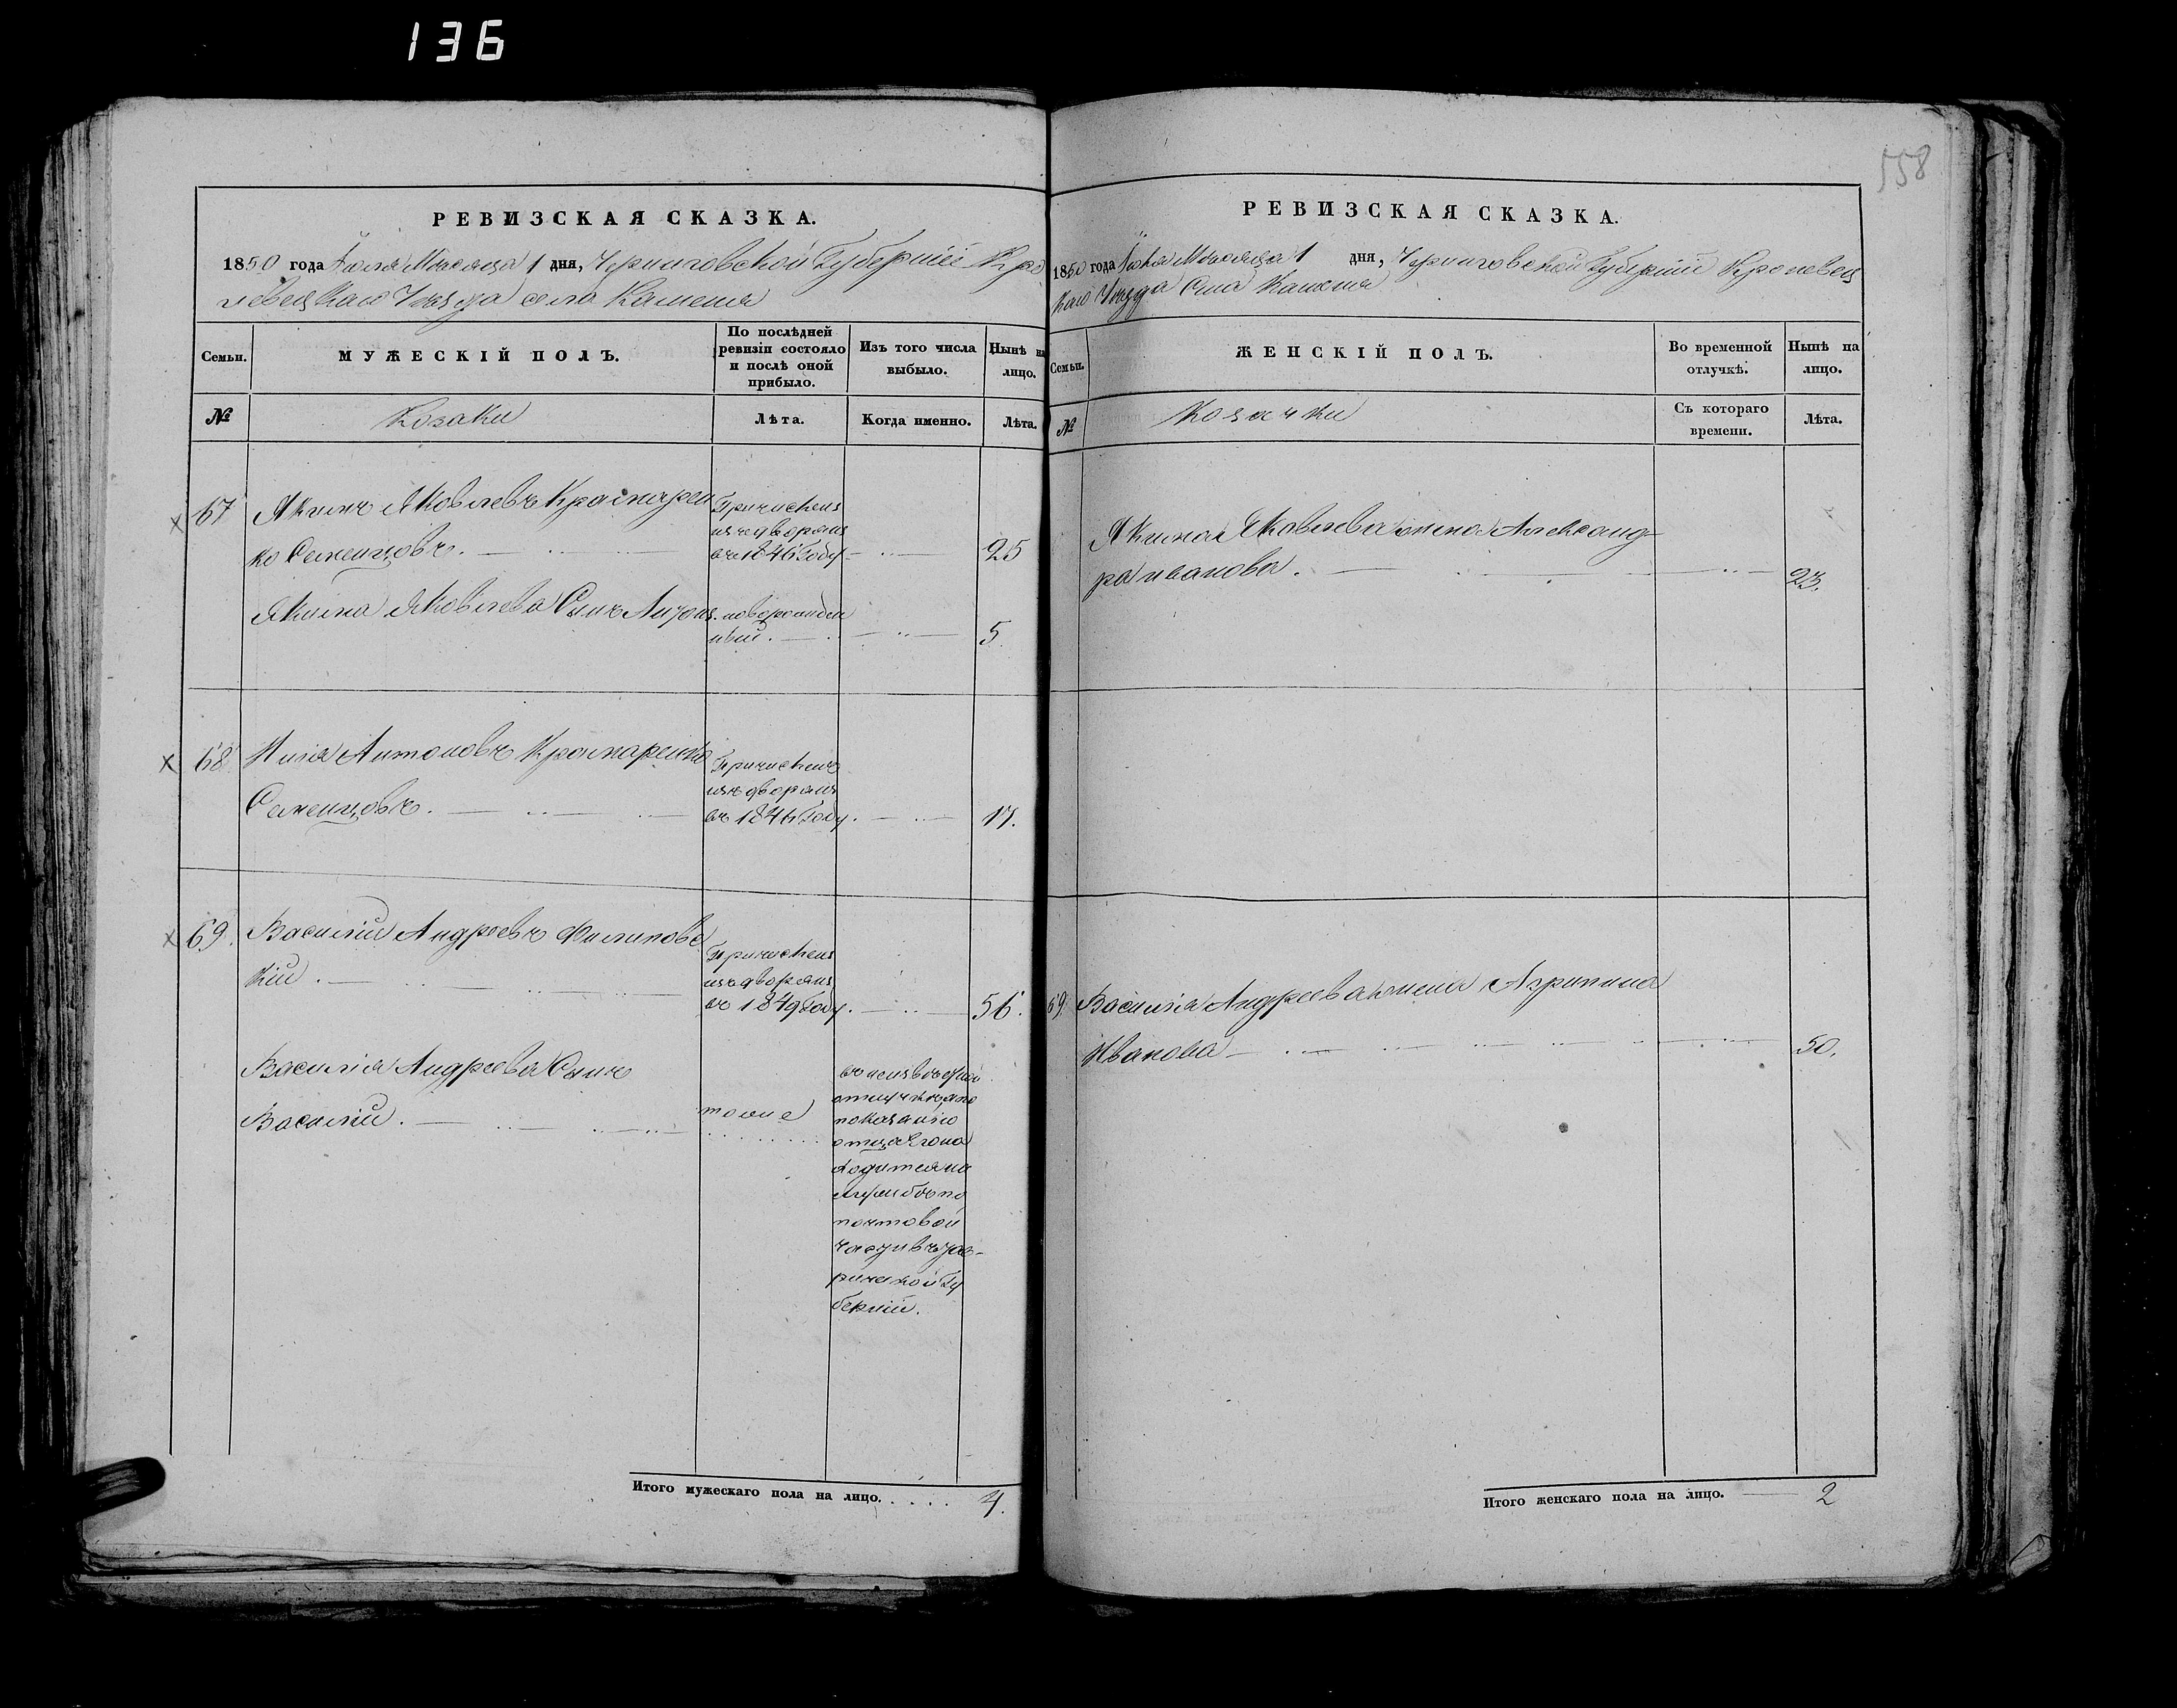 136
558
РЕВИЗСКАЯ СКАЗКА.
1850 года Іюля Мѣсяца 1 дня, Черниговской Губерніи Кро
левецкаго Уѣзда села Каменя
Семьи.
МУЖЕСКІЙ ПОЛЪ.
По послѣдней
ревизіи состояло
и послѣ оной
прибыло.
Изъ того числа
выбыло.
Нынѣ на
лицо.
№
Козаки
Лѣта.
Когда именно.
Лѣта.
67
Якимъ Яковлевъ Крамарен
ко Семенцовъ.
Причислен
изъ дворянъ
въ 1846 Году
25
Якима Яковлева Сынъ Антонъ
новорожден
ный.
5.
68
Илія Антоновъ Крамаренко
Семенцовъ.
Причисленъ
изъ дворянъ
въ 1846 Году.
17.
69.
Василій Андреевъ Филиповс
кій.
Причислен
изъ дворянъ
въ 1849 Году.
56.
Василія Андреева Сынъ
Василій.
тоже
въ неизвѣстной
отлучкѣ, а по
показанію
отца Его на
ходится на
службѣ по
почтовой
части въ Тав-
рической Гу
берніи.
Итого мужескаго пола на лицо.
4.
РЕВИЗСКАЯ СКАЗКА.
1850 года Іюля Мѣсяца 1 дня, Черниговской Губерніи Кролевец
каго Уѣзда Села Каменя
Семьи.
ЖЕНСКІЙ ПОЛЪ.
Во временной
отлучкѣ.
Нынѣ на
лицо.
№
Козачки
Съ котораго
времени.
Лѣта.
Якима Яковлева жена Александ-
ра иванова.
23.
69.
Василія Андреева жена Агрипина
Иванова
50.
Итого женскаго пола на лицо.
2